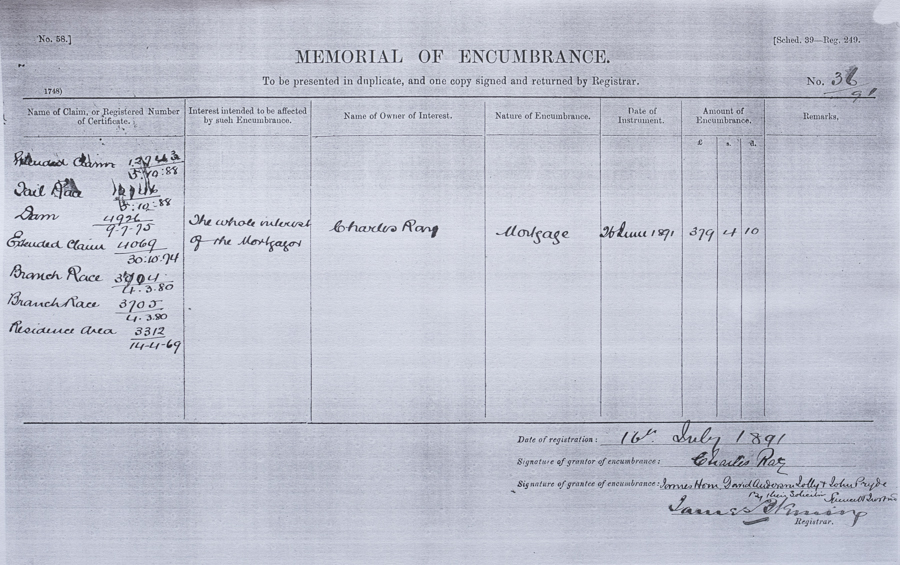 No. 58.]
[Sched. 39—Reg. 249.
MEMORIAL OF ENCUMBRANCE.
To be presented in duplicate, and one copy signed and returned by Registrar.
No. 36/91
1748)
Name of Claim, or Registered Number of Certificate.
Interest intended to be affected by such Encumbrance.
Name of Owner of Interest.
Nature of Encumbrance.
Date of Instrument.
Amount of Encumbrance.
Remarks.
£ s. d.
Extended Claim
15.10.88
Tail Race
15.10.88
Dam 4926
9.7.75
Extended Claim 4069
30.10.74
Branch Race 3704
4.3.80
Branch Race 3705
4.3.80
Residence Area 3312
14-4-69
The whole interest
of the Mortgagor
Charles Ray
Mortgage
26 June 1891
379 4 10
Date of registration: 16th July 1891
Signature of grantor of encumbrance: Charles Ray
Signature of grantee of encumbrance: James Horn David Anderson Jolly & John Pryde
By their Solicitor
James Fleming
Registrar.